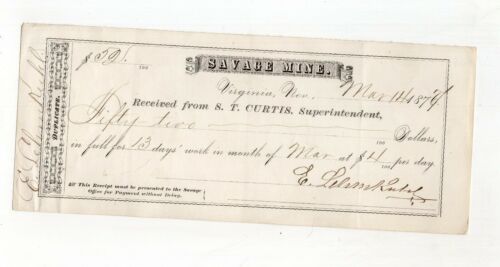 SAVAGE MINE.
$52. 100
Virginia, Nev. Mar 14 1876
Received from S. T. CURTIS, Superintendent,
Fifty two 100 Dollars,
in full for 13 days' work in month of Mar at $4 100 per day.
E.
This Receipt must be presented to the Savage
Office for Payment without Delay.
DUPLICATE.